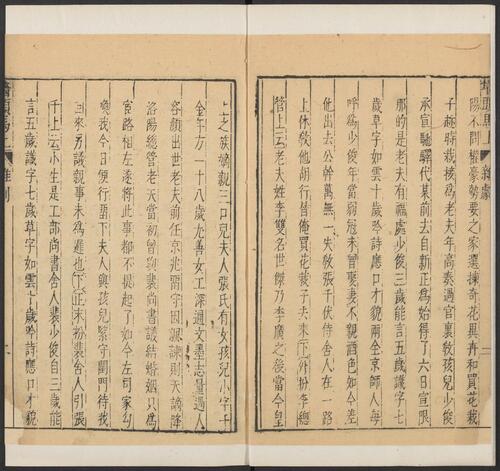 墻頭馬上 雜劇
陽不問權豪勢要之家選揀奇花異卉和買花栽
子趂時栽接爲老夫年高奏過官裏教孩兒少俊
承宣馳驛代某前去自新正爲始得了六日宣限
那的是老夫有福處少俊三歲能言五歲識字七
歲草字如雲十歲吟詩應口才貌兩全京師人每
呼爲少俊年當弱冠未曾娶妻不親酒色如今差
他出去公幹萬無一失教張千伏侍舍人在一路
上休教他胡行替俺買花栽子去來下外扮李總
管上云老夫姓李雙名世傑乃李廣之後當今皇
上之族嫡親三口兒夫人張氏有女孩兒小字千
金年方一十八歲尤善女工深通文墨志量過人
容顏出世老夫前任京兆留守因諷諫則天謫降
洛陽總管老夫當初曾與裴尚書議結婚姻只爲
宦路相左遂將此事都不提起了如今左司家勾
喚我今日便行留下夫人與孩兒緊守閨門待我
回來另議親事未爲遲也下正末扮裴舍人引張
千上云小生是工部尚書舍人裴少俊自三歲能
言五歲識字七歲草字如雲十歲吟詩應口才貌
墻頭馬上 雜劇